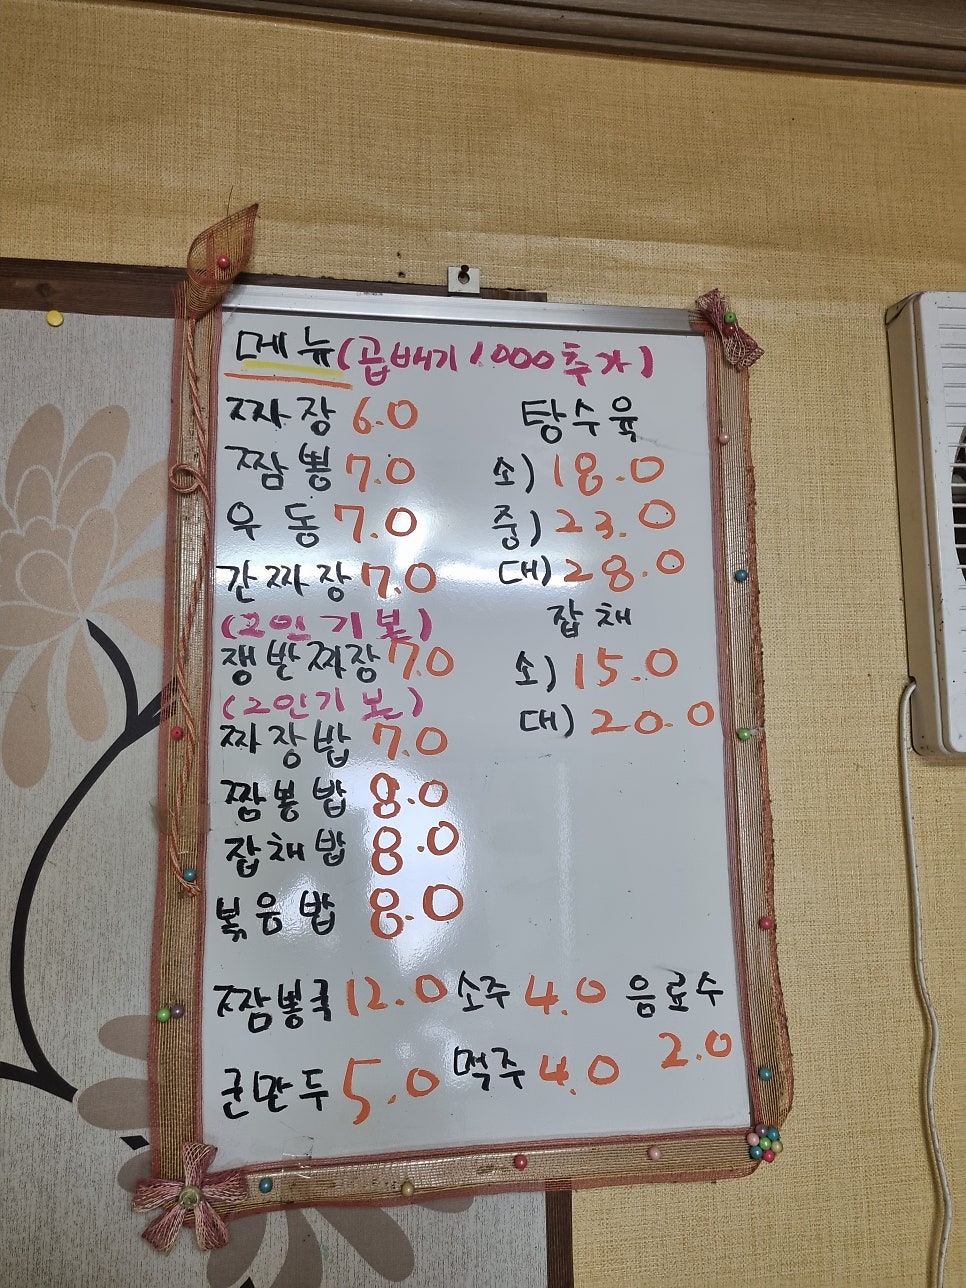 메뉴(곱배기 1000추가)
짜장 6.0
짬뽕 7.0
우동 7.0
간짜장 7.0
(2인기본)
쟁반짜장 7.0
(2인기본)
짜장밥 7.0
짬뽕밥 8.0
잡채밥 8.0
볶음밥 8.0
탕수육
소) 18.0
중) 23.0
대) 28.0
잡채
소) 15.0
대) 20.0
짬뽕국 12.0 소주 4.0 음료수 2.0
군만두 5.0 맥주 4.0